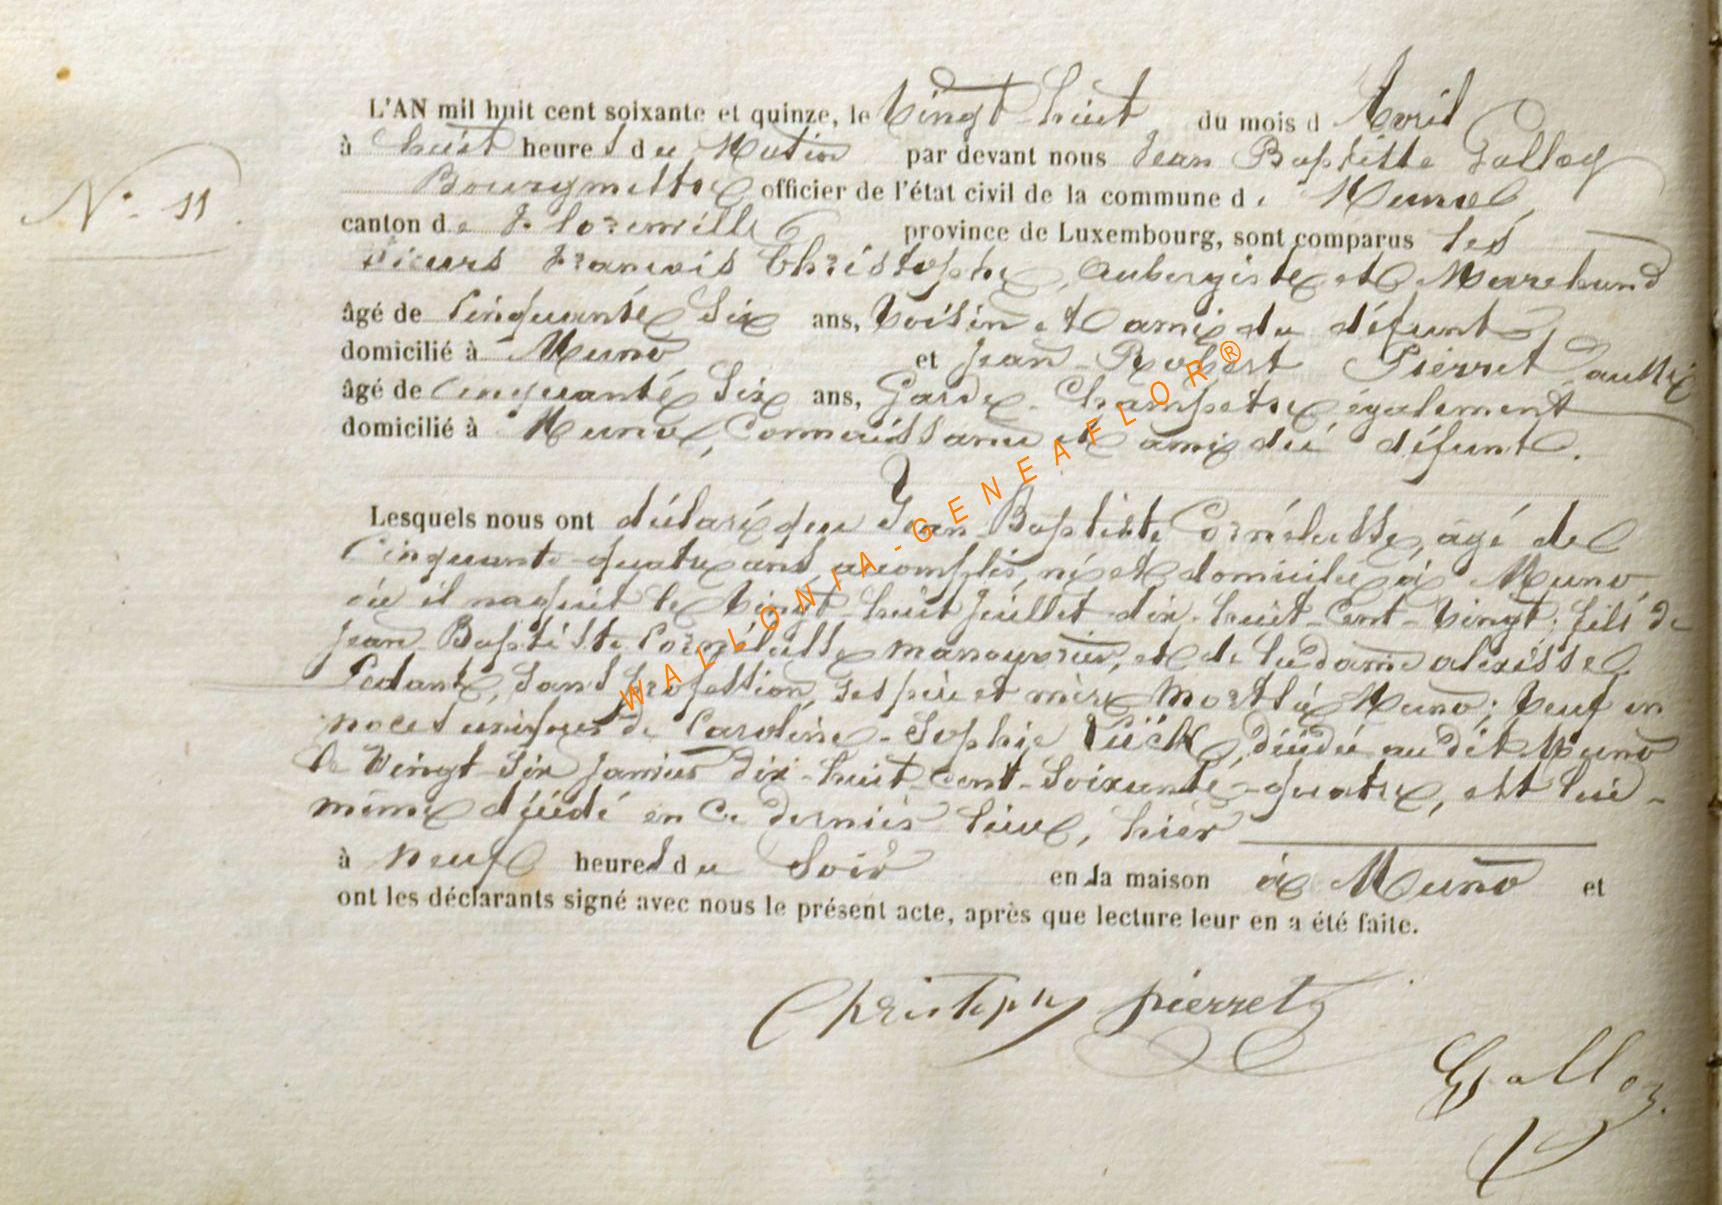 N° 11.
L'AN mil huit cent soixante et quinze, le Vingt-huit du mois d Avril
à huit heures du Matin par devant nous Jean Baptiste Galloy
Bourgmestre officier de l'état civil de la commune de Muno,
canton de Florenville province de Luxembourg, sont comparus les
sieurs François Christophe, Aubergiste et Marchand
âgé de Cinquante Six ans, Voisin et ami du défunt,
domicilié à Muno et Jean-Robert Pierret aussi
âgé de Cinquante Six ans, Garde-Champetre également
domicilié à Muno, Connaissance et ami du défunt.
Lesquels nous ont déclaré que Jean Baptiste Cornélusse, âgé de
Cinquante-quatre ans accomplis, né et domicilié à Muno,
où il naquit le Vingt-huit Juillet dix-huit-Cent-Vingt; fils de
Jean Baptiste Cornélusse manouvrier, et de la dame alexisse
Pedante, Sans profession, ses père et mère morts à Muno; Veuf en
noces uniques de Caroline-Sophie décédée au dit Muno
le Vingt-Six Janvier dix-huit-Cent-Soixante-quatre, est lui-
même décédé en Ce dernier lieu, hier
à neuf heures du Soir en la maison à Muno et
ont les déclarants signé avec nous le présent acte, après que lecture leur en a été faite.
Christophe Pierret
Galloy
WALLONIA-GENEAFLOR®